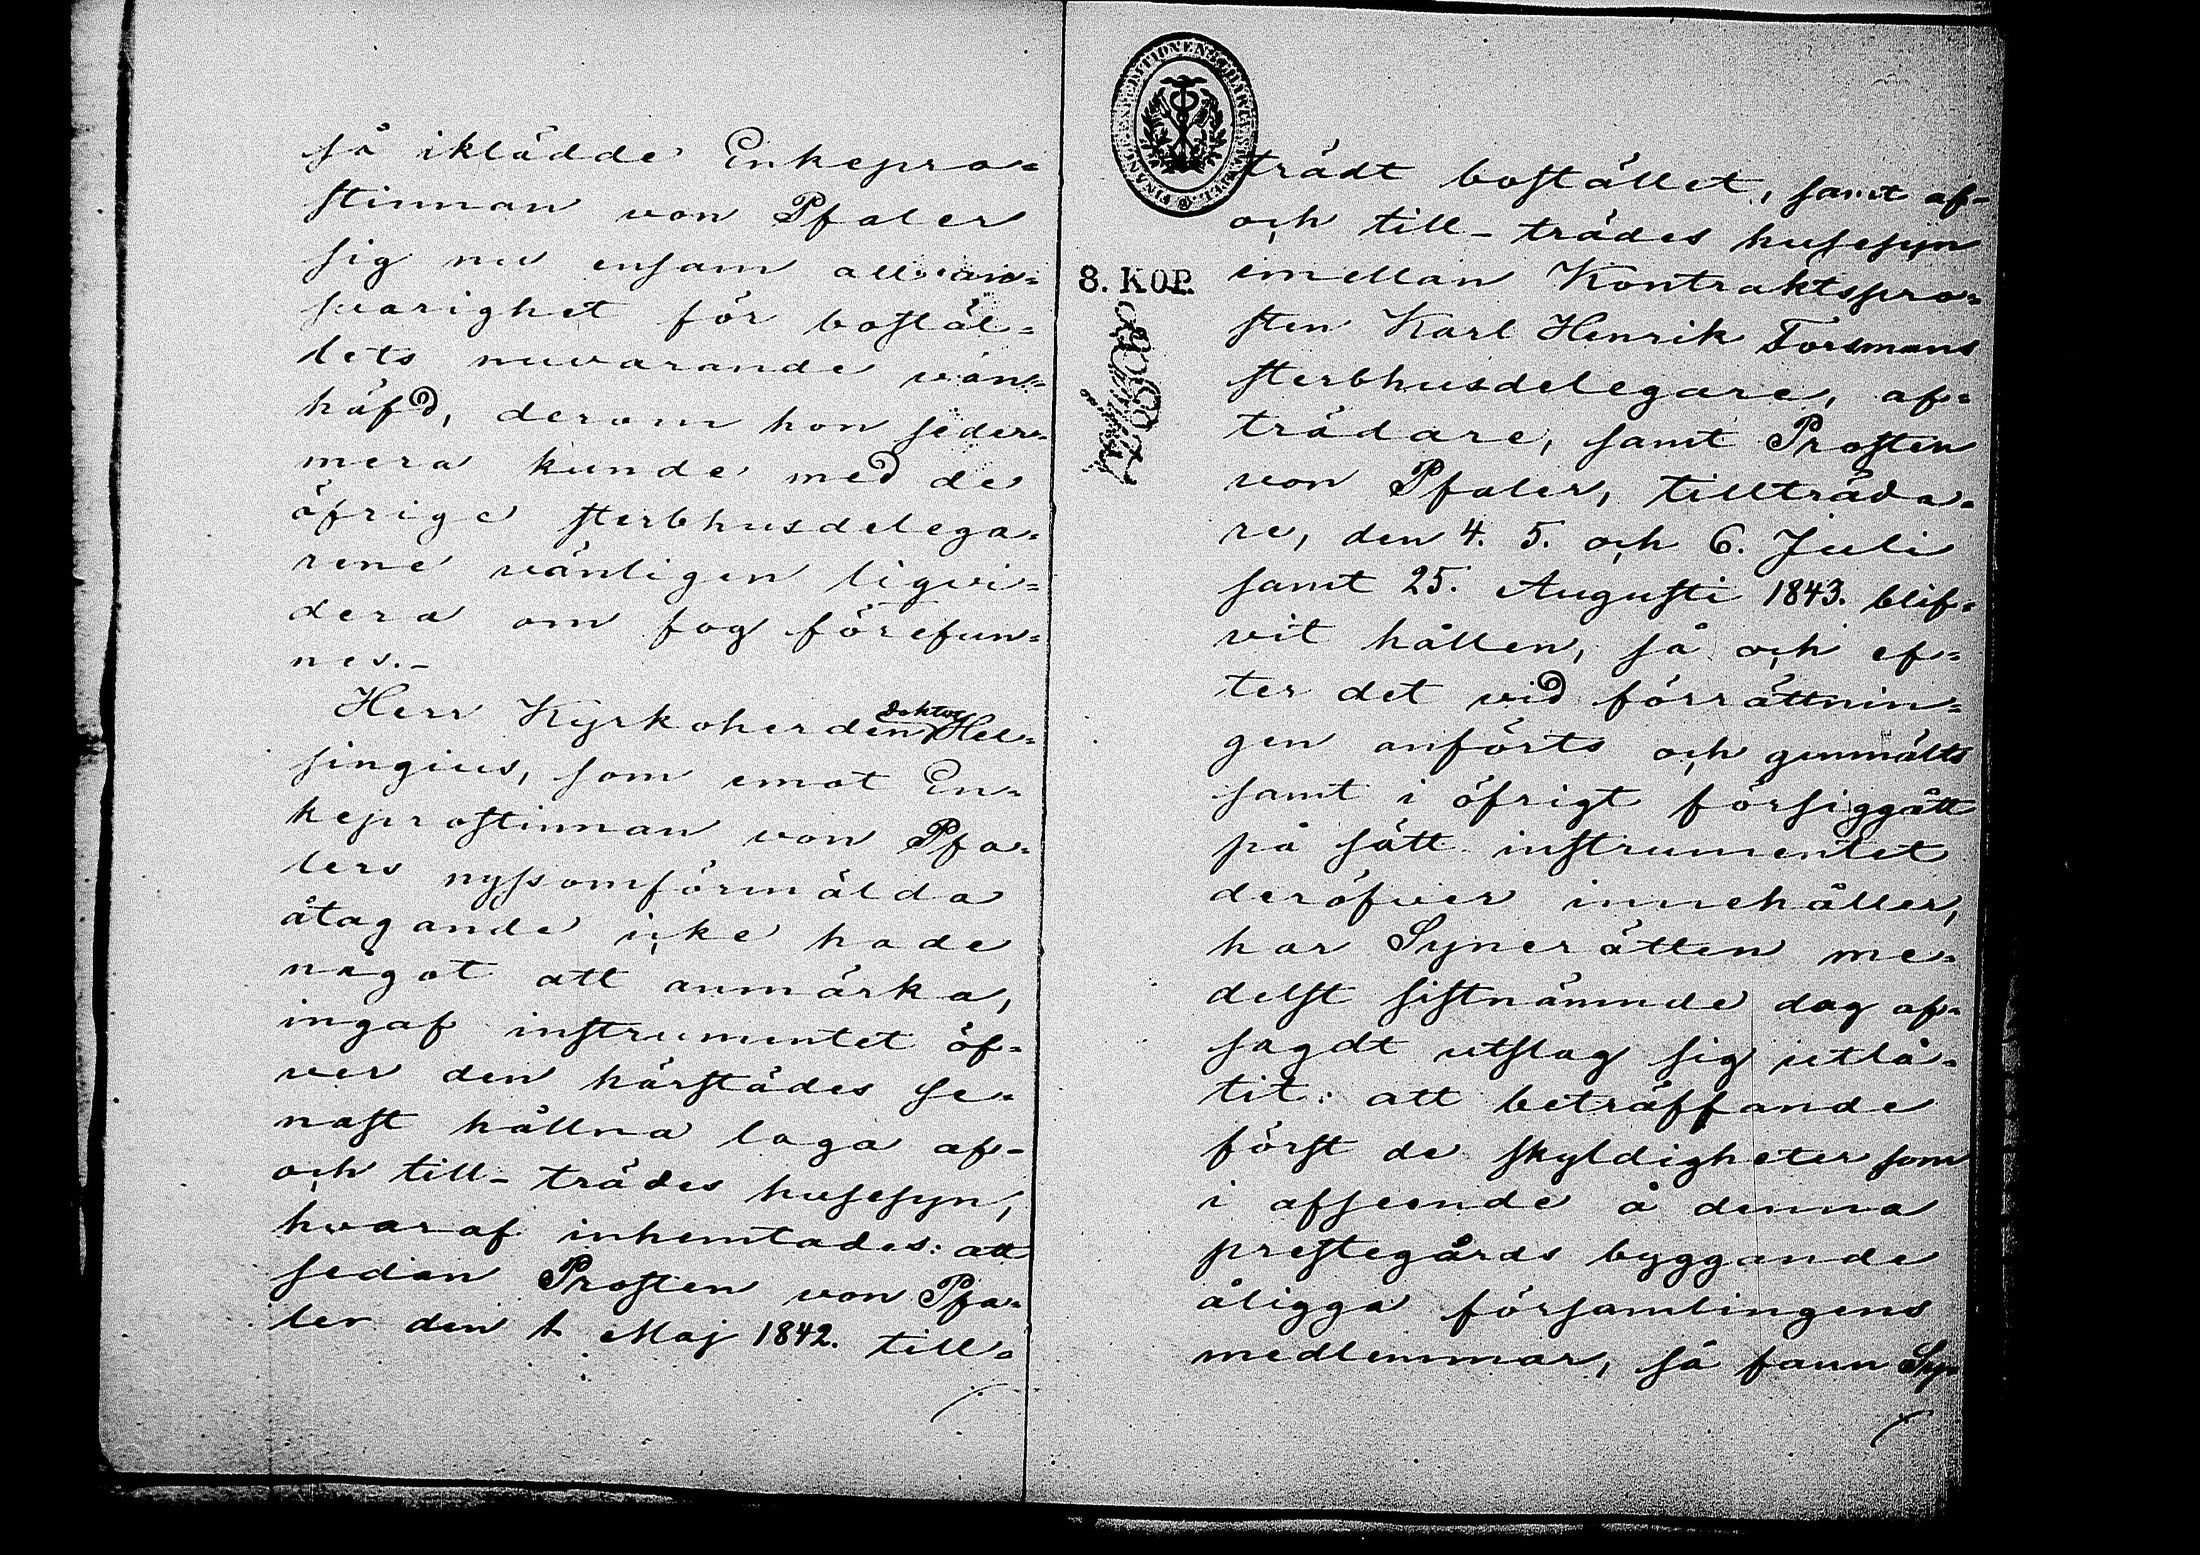 så iklädde Enkepro-
stinnan von Pfaler
sig nu ensam all an-
svarighet för bostäl-
lets nuvarande van-
häfd, derom hon seder-
mera kunde med de
öfrige sterbhusdelega-
rene vänligen liqvi-
dera om fog förefun-
nes.-
Herr Kyrkoherden doktor Hel-
singius, som emot En-
keprostinnan von Pfa-
lers nyssomförmälda
åtagande icke hade
något att anmärka,
ingaf instrumentet öf-
ver den härstädes se-
nast hållna laga af-
och till-trädes husesyn,
hvaraf inhemtades: att
sedan Prosten von Pfa-
ler den 1 Maj 1842. till-
FINANCE.EXPEDITIONENS CHARTÆ STEMPEL
8. KOP.
trädt bostället, samt af-
och till-trädes husesyn
emellan Kontraktspro-
sten Karl Henrik Forsmans
sterbhusdelegare, af-
trädare, samt Prosten
von Pfaler, tillträda-
re, den 4. 5. och 6. Juli
samt 25. Augusti 1843. blif-
vit hållen, så och ef-
ter det vid förrättnin-
gen anförts och genmälts
samt i öfrigt försiggått
på sätt instrumentet
deröfver innehåller,
har Synerätten me-
delst sistnämnde dag af-
sagdt utslag sig utlå-
tit: att beträffande
först de skyldigheter som
i afseende å denna
prestegårds byggande
åligga församlingens
medlemmar, så fann Syn